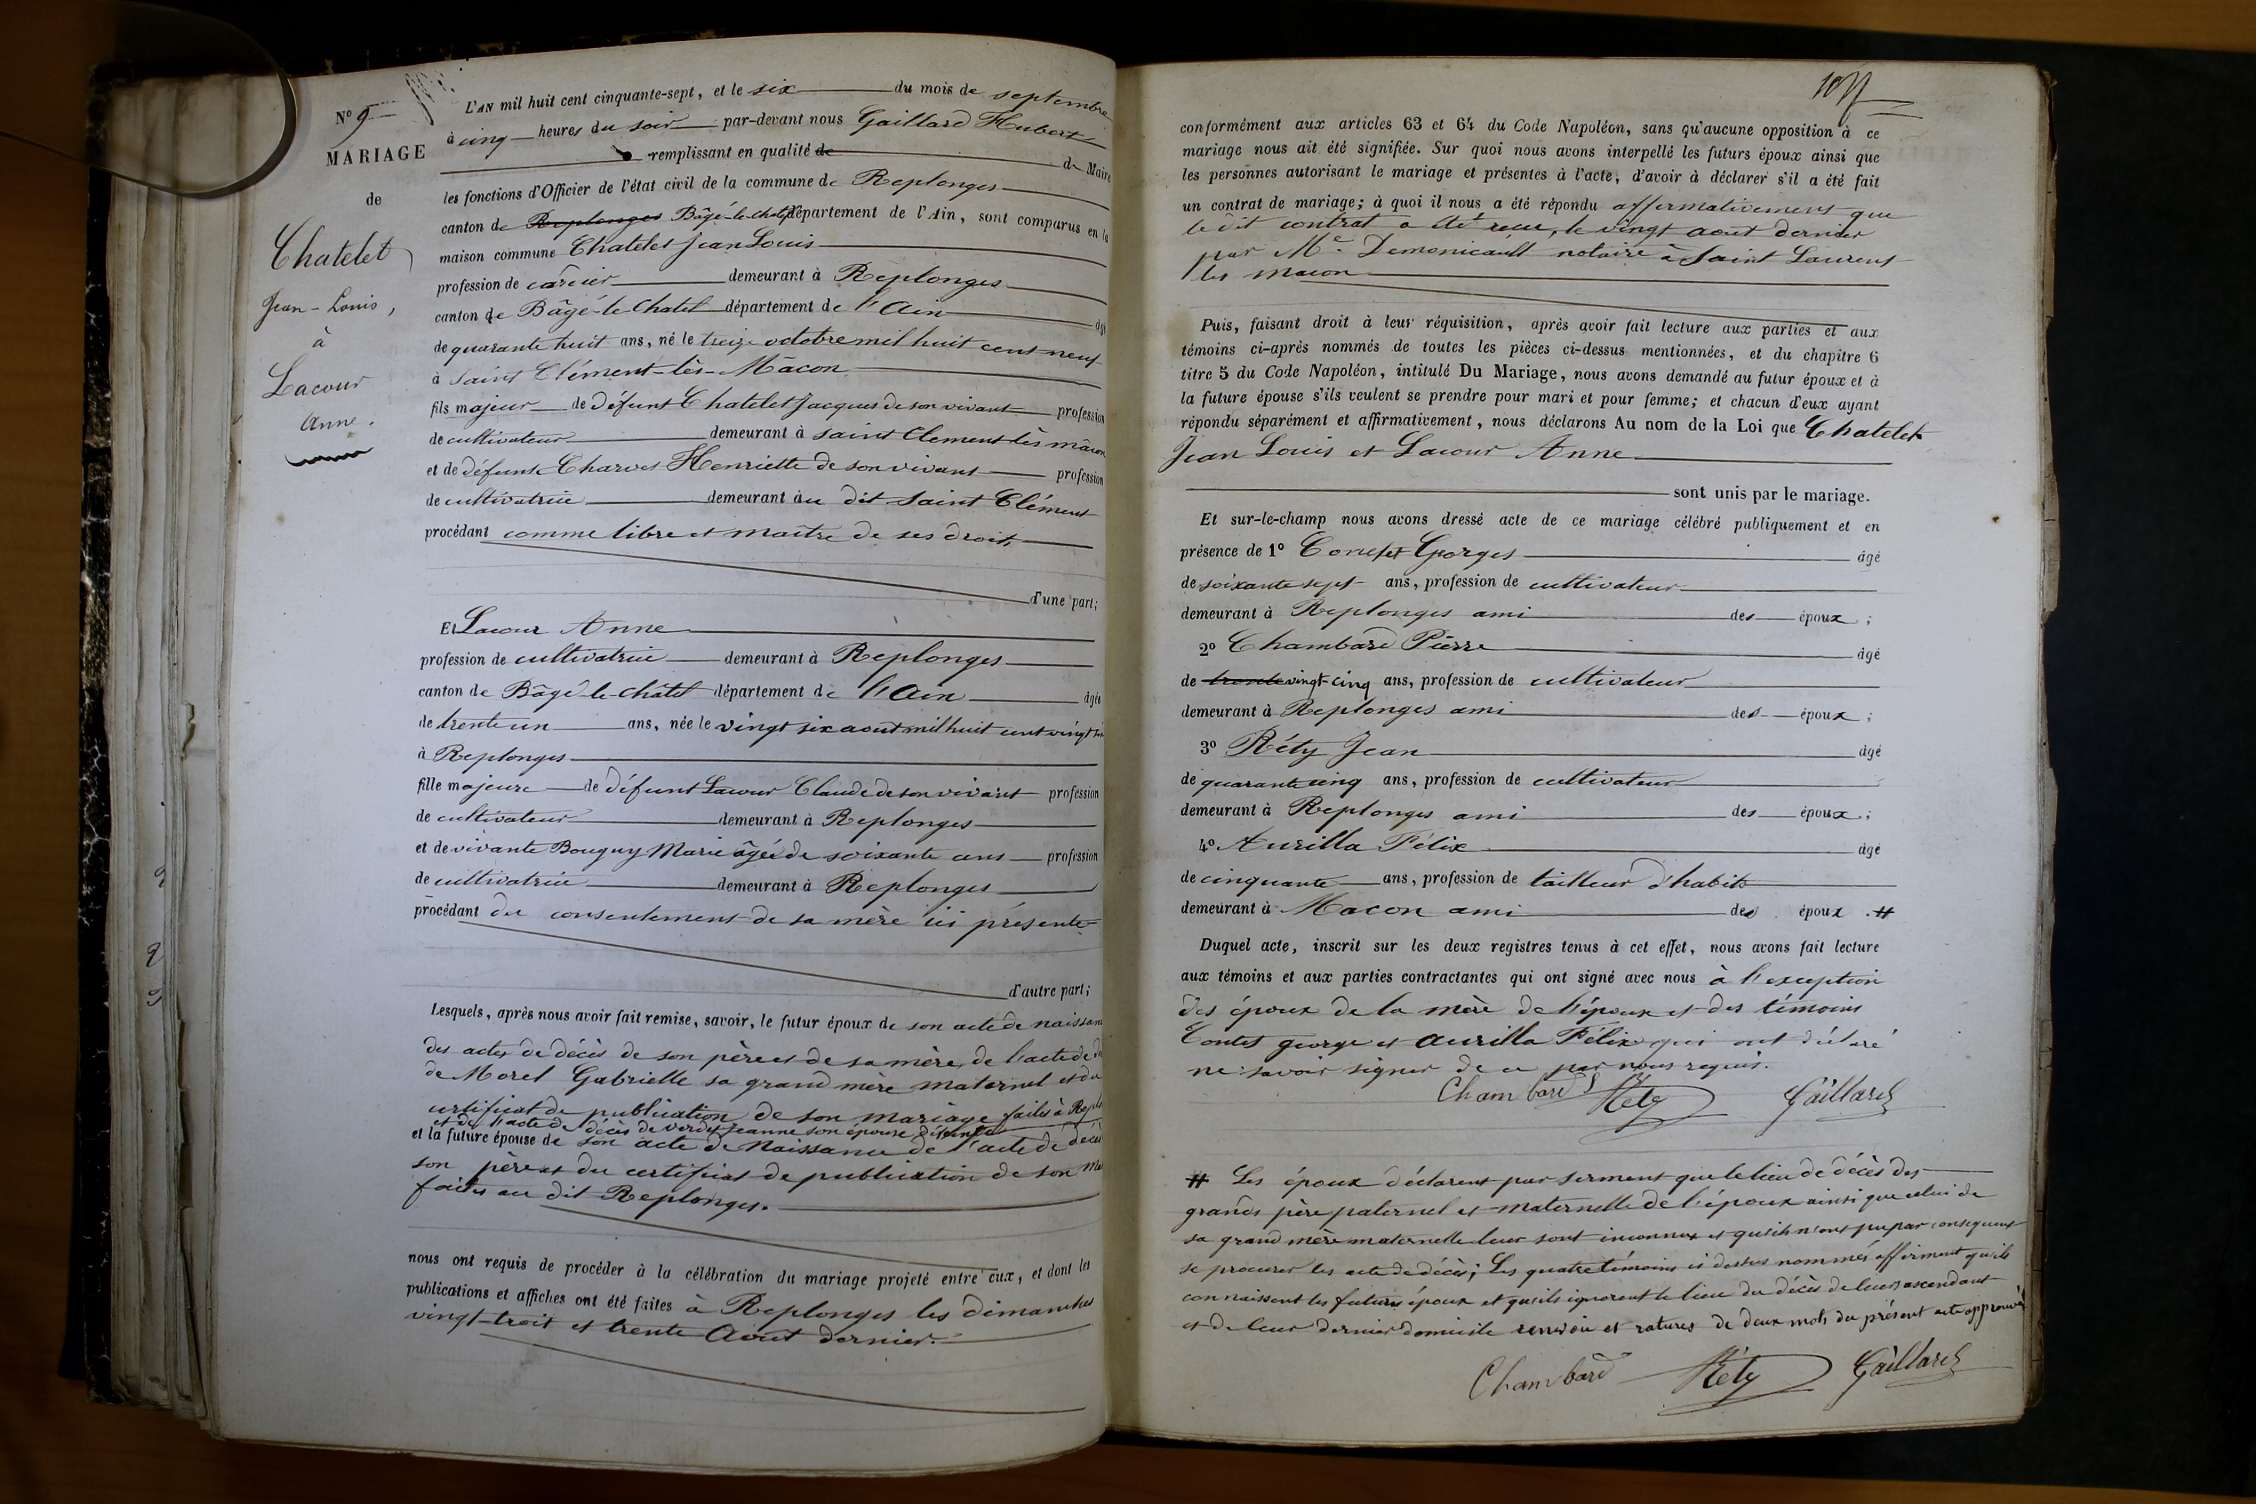 N° 9
MARIAGE
de
Chatelet
Jean-Louis,
à
Lacour
Anne.
L'AN mil huit cent cinquante-sept, et le six du mois de septembre
à cinq heures du soir par-devant nous Gaillard Hubert
remplissant en qualité de de Maire
les fonctions d'Officier de l'état civil de la commune de Replonges
canton de Replonges Bâgé-le-chatel département de l'Ain, sont comparus en la
maison commune Chatelet Jean Louis
profession de carrier demeurant à Replonges
canton de Bâgé-le-Chatel département de l'Ain âgé
de quarante huit ans, né le treize octobre mil huit cent neuf
à Saint Clément-lès-Mâcon
fils majeur de défunt Chatelet Jacques de son vivant profession
de cultivateur demeurant à saint Clement lès mâcon
et de défunte Charvet Henriette de son vivant profession
de cultivatrice demeurant au dit Saint Clément
procédant comme libre et maître de ses droits
d'une part;
Et Lacour Anne
profession de cultivatrice demeurant à Replonges
canton de Bâgé-le-châtel département de l'Ain âgée
de trente un ans, née le vingt six aout mil huit cent vingt six
à Replonges
fille majeure de défunt Lacour Claude de son vivant profession
de cultivateur demeurant à Replonges
et de vivante Bouguy Marie âgée de soixante ans profession
de cultivatrice demeurant à Replonges
procédant du consentement de sa mère ici présente
d'autre part;
Lesquels, après nous avoir fait remise, savoir, le futur époux de son acte de naissance
des actes de décès de son père et de sa mère, de l'acte de
de Morel Gabrielle sa grand mere maternel et du
certificat de publication de son mariage faites à Repl
et de l'acte de décès de Verdet Jeanne son épouse défunte
et la future épouse de son acte de Naissance de l'acte de décès
son père et du certificat de publication de son Ma
faites au dit Replonges.
nous ont requis de procéder à la célébration du mariage projeté entre eux, et dont les
publications et affiches ont été faites à Replonges les dimanches
vingt-trois et trente Aout dernier.
conformément aux articles 63 et 64 du Code Napoléon, sans qu'aucune opposition à ce
mariage nous ait été signifiée. Sur quoi nous avons interpellé les futurs époux ainsi que
les personnes autorisant le mariage et présentes à l'acte, d'avoir à déclarer s'il a été fait
un contrat de mariage; à quoi il nous a été répondu affirmativement que
le dit contrat a été reçu, le vingt aout dernier
par Me. Demonicault notaire à Saint Laurent
les macon
Puis, faisant droit à leur réquisition, après avoir fait lecture aux parties et aux
témoins ci-après nommés de toutes les pièces ci-dessus mentionnées, et du chapitre 6
titre 5 du Code Napoléon, intitulé Du Mariage, nous avons demandé au futur époux et à
la future épouse s'ils veulent se prendre pour mari et pour femme; et chacun d'eux ayant
répondu séparément et affirmativement, nous déclarons Au nom de la Loi que Chatelet
Jean Louis et Lacour Anne
sont unis par le mariage.
Et sur-le-champ nous avons dressé acte de ce mariage célébré publiquement et en
présence de 1° Contet Georges âgé
de soixante sept ans, profession de cultivateur
demeurant à Replonges ami des époux;
2° Chambard Pierre âgé
de trente vingt-cinq ans, profession de cultivateur
demeurant à Replonges ami des époux;
3° Réty Jean âgé
de quarante cinq ans, profession de cultivateur
demeurant à Replonges ami des époux;
4° Aurilla Félix âgé
de cinquante ans, profession de tailleur d'habits
demeurant à Macon ami des époux. #
Duquel acte, inscrit sur les deux registres tenus à cet effet, nous avons fait lecture
aux témoins et aux parties contractantes qui ont signé avec nous à l'exception
des époux de la mère de l'épouse et des témoins
Contet george et Aurilla Félix qui ont déclaré
ne savoir signer de ce par nous requis.
Chambard Réty Gaillard
# Les époux déclarent par serment que le lieu de décès des
grands père paternel et maternelle de l'époux ainsi que celui de
sa grand mère maternelle leur sont inconnus et qu'ils n'ont pu par consequent
se procurer les acte de décès; Les quatre témoins ci dessus nommés affirment qu'ils
connaissent les futurs époux et qu'ils ignorent le lieu du décès de leurs ascendants
et de leur dernier domicile renvoi et ratures de deux mots du présent acte approuvés
Chambard Réty Gaillard